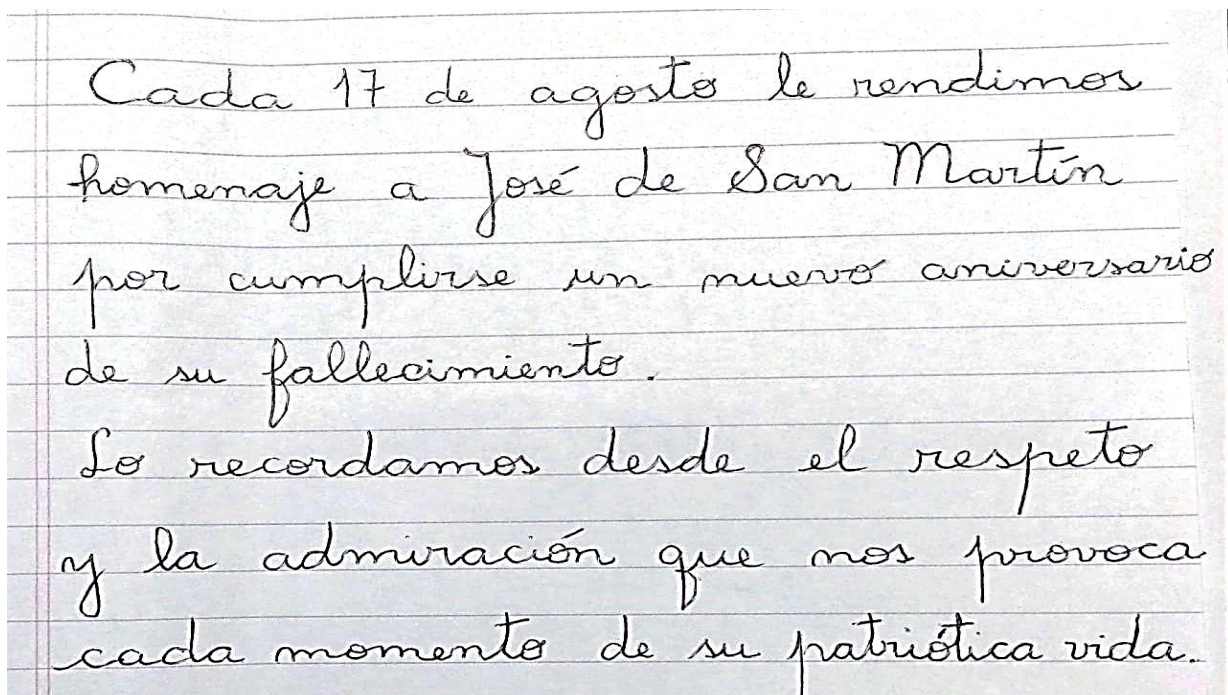 Cada 17 de agosto le rendimos
homenaje a José de San Martín
por cumplirse un nuevo aniversario
de su fallecimiento.
Lo recordamos desde el respeto
y la admiración que nos provoca
cada momento de su patriótica vida.